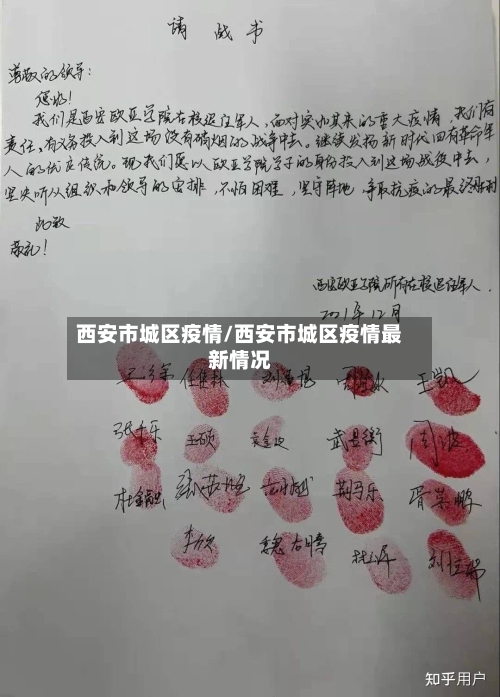 请战书
尊敬的领导：
您好！
我们是西安欧亚学院在校退役军人，面对突如其来的重大疫情，我们有
责任，有义务投入到这场没有硝烟的战争中去。继续发扬新时代退役革命军
人的优良传统。现我们愿以欧亚学院学子的身份投入到这场战役中去，
坚决听从组织和领导的安排，不怕困难，坚守阵地，争取抗疫的最终胜利
此致
敬礼！
西安欧亚学院所有在校退役军人．
2021年12月
西安市城区疫情/西安市城区疫情最
新情况
任佳林 刘昌据 王凯
张乐 王硕 武昱衡 周波
荆马乐 胥荣鹏
李欣 魏右腾 刘恒瑞
知乎用户